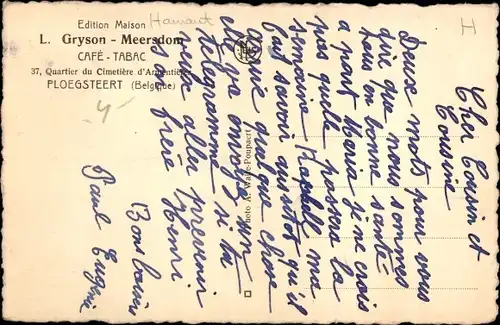 Edition Maison
L. Gryson - Meersdom
CAFÉ - TABAC
37, Quartier du Cimetière d'Armentières
PLOEGSTEERT (Belgique)
Hainaut
H
Photo A. Waile-Poupaert
Cher Cousin et
Cousine
Deux mots pour vous
dire que nous sommes
tous en bonne santé
a part Marie je ne crois
pas quelle passera la
semaine Raphaël ma
fait savoir qui sitot qu'il
arrive quelque chose
elle envoyer un
télégramme si tu
veux aller prevenir
ton frère Henri
Bons baisers
Paul Eugénie